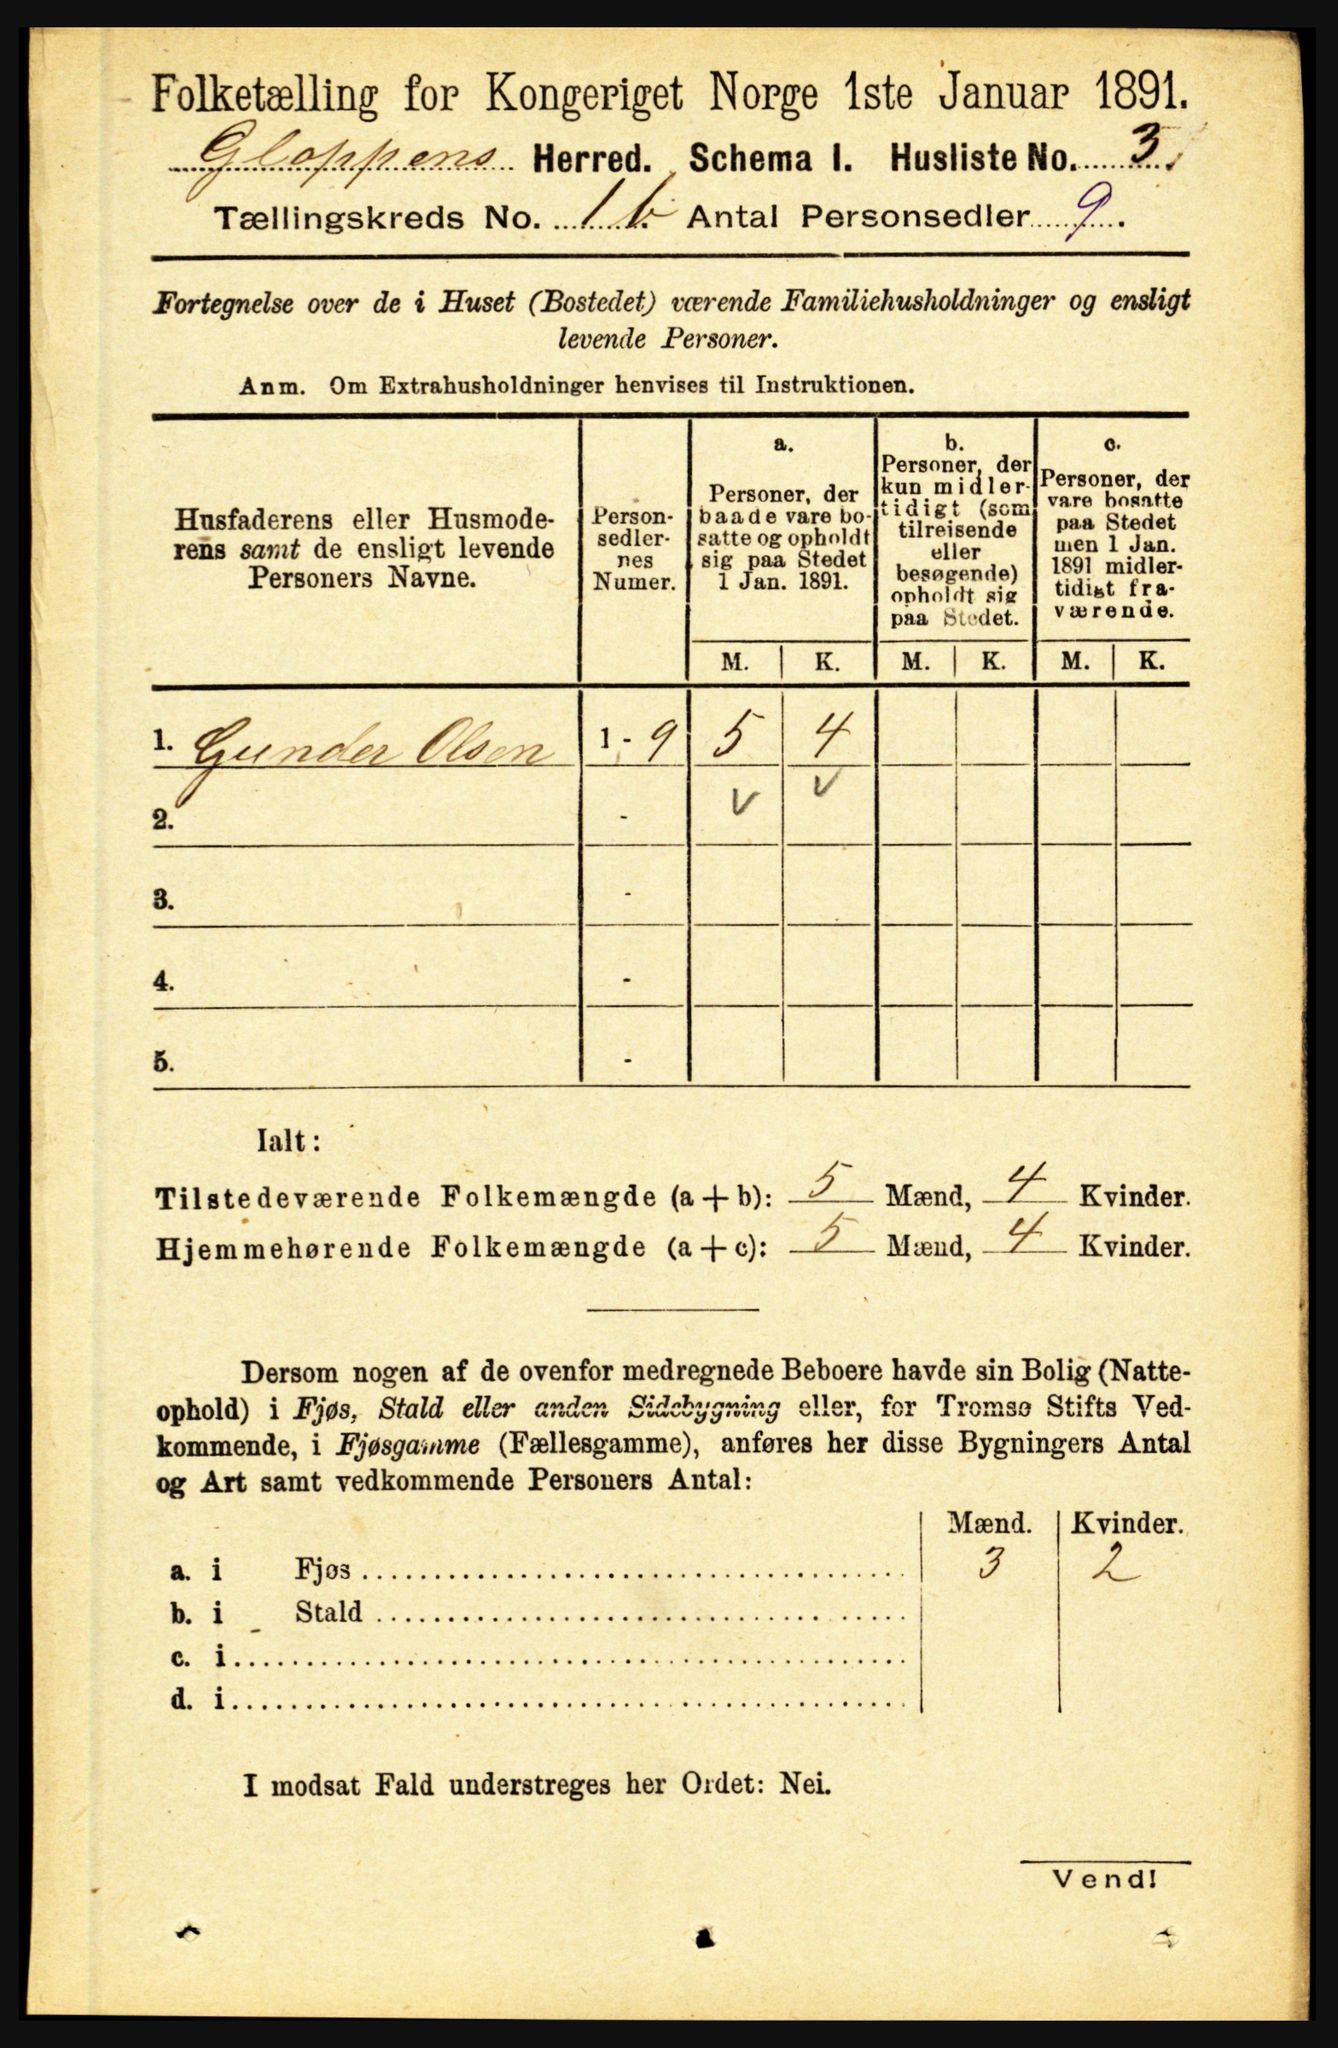 Folketælling for Kongeriget Norge 1ste Januar 1891.
Gloppens Herred. Schema I. Husliste No. 3.
Tællingskreds No. 1 b. Antal Personsedler 9.
Fortegnelse over de i Huset (Bostedet) værende Familiehusholdninger og ensligt
levende Personer.
Anm. Om Extrahusholdninger henvises til Instruktionen.
Husfaderens eller Husmode-
rens samt de ensligt levende
Personers Navne.
Person-
sedler-
nes
Numer.
a.
Personer, der
baade vare bo-
satte og opholdt
sig paa Stedet
1 Jan. 1891.
b.
Personer, der
kun midler-
tidigt (som
tilreisende
eller
besøgende)
opholdt sig
paa Stedet.
c.
Personer, der
vare bosatte
paa Stedet
men 1 Jan.
1891 midler-
tidigt fra-
værende.
M. K. M. K. M. K.
1. Gunder Olsen 1 - 9 5 4
2. -
3. -
4. -
5. -
Ialt:
Tilstedeværende Folkemængde (a + b): 5 Mænd, 4 Kvinder.
Hjemmehørende Folkemængde (a + c): 5 Mænd, 4 Kvinder.
Dersom nogen af de ovenfor medregnede Beboere havde sin Bolig (Natte-
ophold) i Fjøs, Stald eller anden Sidebygning eller, for Tromsø Stifts Ved-
kommende, i Fjøsgamme (Fællesgamme), anføres her disse Bygningers Antal
og Art samt vedkommende Personers Antal:
Mænd. Kvinder.
a. i Fjøs 3 2
b. i Stald
c. i
d. i
I modsat Fald understreges her Ordet: Nei.
Vend!